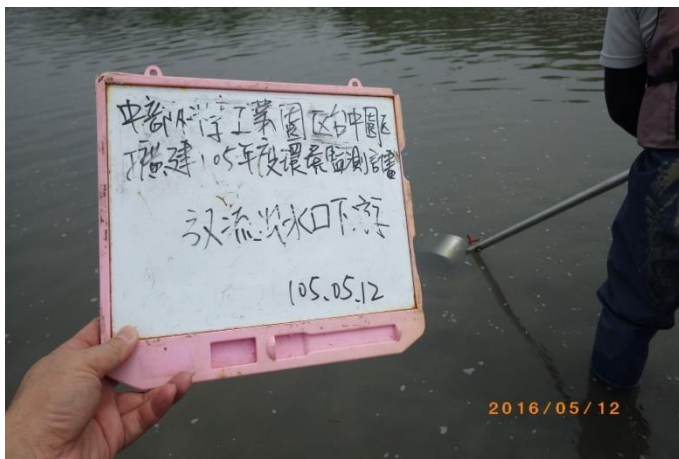 中部科学工業園区台中園区
擴建105年度環境監測計畫
放流出水口下游
105.05.12
2016/05/12